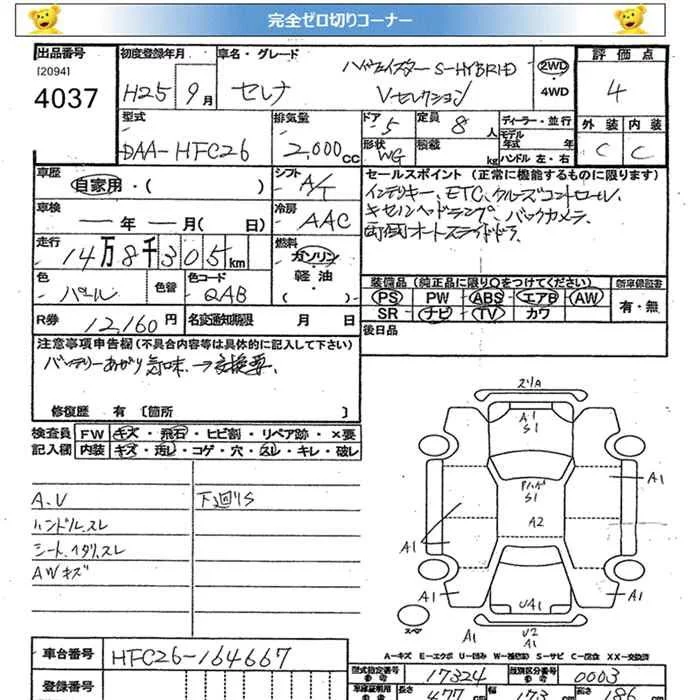 完全ゼロ切りコーナー
出品番号
[2094]
4037
初度登録年月
H25 9月
車名・グレード
セレナ
ハイウェイスター S-HYBRID
Vセレクション
2WD
・
4WD
評価点
4
外装 内装
C C
型式
DAA-HFC26
排気量
2,000cc
ドア
5
定員
8人
形状
WG
積載
kg
ディーラー・並行
モデル
年式 年
ハンドル 左・右
車歴
自家用・( )
シフト
A/T
車検
年 月( 日)
冷房
AAC
走行
14万8千305km
燃料
ガソリン
軽油
( )
色
パール
色替
色コード
QAB
R券 12,160円
名変通知期限 月 日
セールスポイント(正常に機能するものに限ります)
インテリキー、ETC、クルーズコントロール、
キセノンヘッドランプ、バックカメラ、
両側オートスライドドア
装備品(純正品に限り○をつけてください)
PS PW ABS エアB AW
SR ナビ TV カワ
新車保証書
有・無
後日品
注意事項申告欄(不具合内容等は具体的に記入して下さい)
バッテリーあがり気味→交換要、
修復歴 有 [箇所 ]
検査員 FW キズ・飛石・ヒビ割・リペア跡・×要
記入欄 内装 キズ・汚レ・コゲ・穴・スレ・キレ・破レ
A.V
下廻りS
ハンドルスレ
シートイタミスレ
AWキズ
ズリA
A1
S1
S1
A2
A1
A1
A1
A1
UA1
U2
A1
A1
スペア
A-キズ E-エクボ U-凹み W-補修跡 S-サビ C-腐食 XX-交換済
車台番号
HFC26-164667
登録番号
型式指定番号
17324
類別区分番号
0003
参考
長さ
477
cm
幅
173
cm
高さ
186
cm